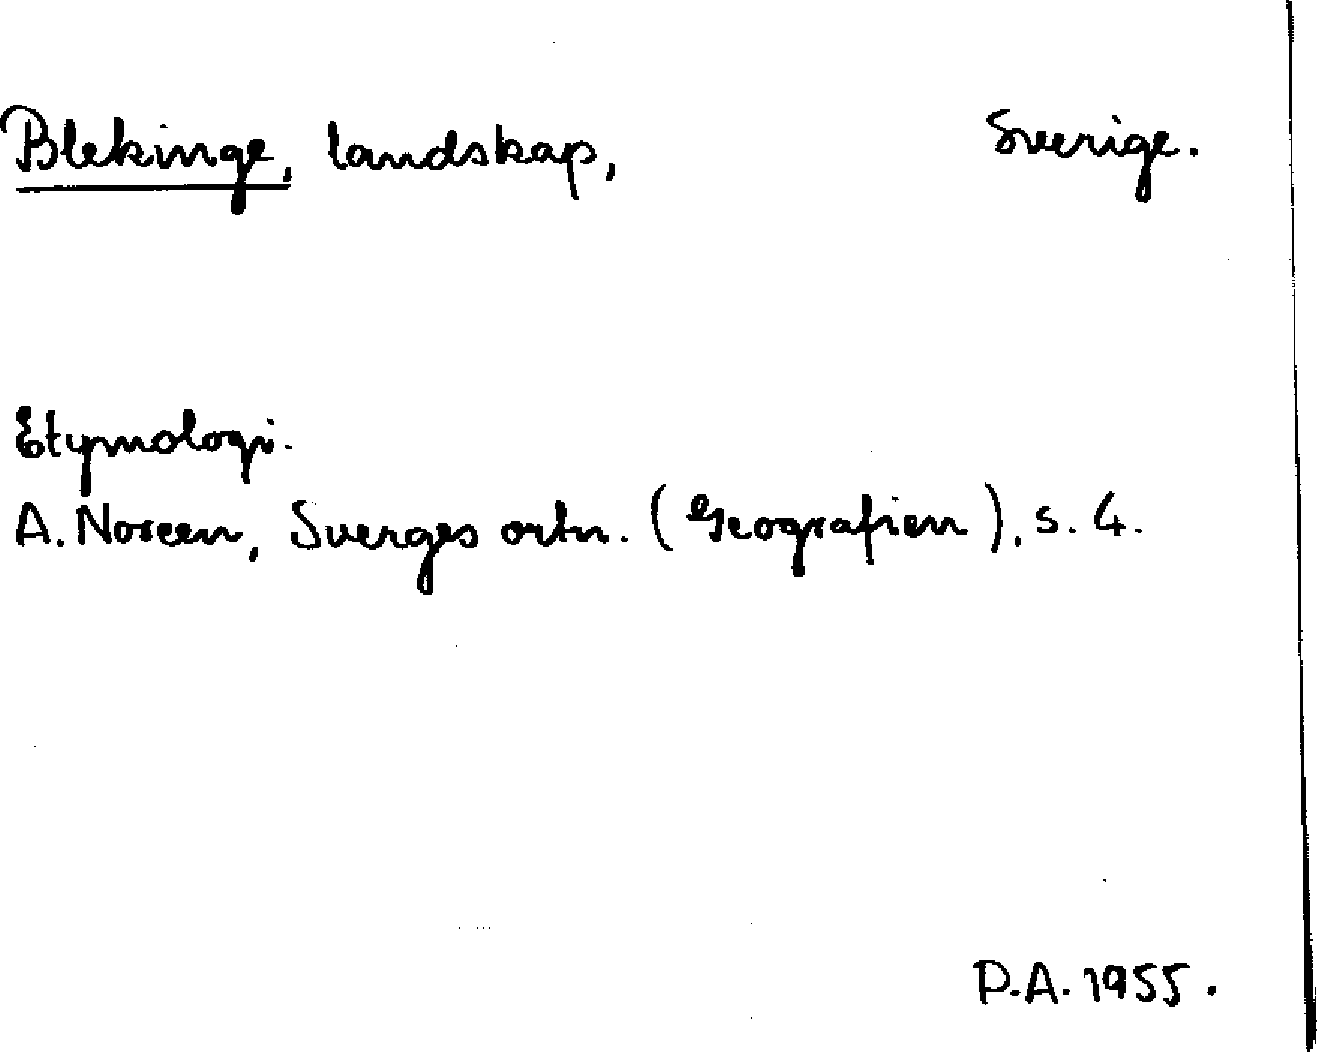 Blekinge, landskap, Sverige.
Etymologi.
A. Noreen, Sverges ortn. (Geografien), s. 4.
P.A. 1955.